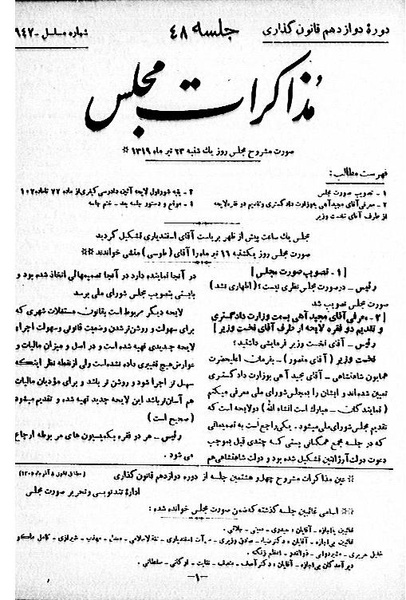 دورهٔ دوازدهم قانون گذاری
جلسه ۴۸
شماره مسلسل - ۹۴۷
مذاکرات مجلس
صورت مشروح مجلس روز یك شنبه ۲۳ تیر ماه ۱۳۱۹ *
فهرست مطالب:
۱ - تصویب صورت مجلس
۲ - معرفی آقای مجید آهی بوزارت دادگستری و تقدیم دو فقره لایحه
از طرف آقای نخست وزیر
۳ - بقیه شور اول لایحه آئین دادرسی کیفری از ماده ۷۷ تا ماده ۱۰۲
۴ - موقع و دستور جلسه بعد - ختم جلسه
مجلس یك ساعت پیش از ظهر بریاست آقای اسفندیاری تشکیل گردید
صورت مجلس روز یکشنبه ۱۶ تیر ماه را آقای (طوسی) منشی خواندند
[۱ - تصویب صورت مجلس]
رئیس - در صورت مجلس نظری نیست؟ (اظهاری نشد)
صورت مجلس تصویب شد
[۲ - معرفی آقای مجید آهی بسمت وزارت دادگستری
و تقدیم دو فقره لایحه از طرف آقای نخست وزیر]
رئیس - آقای نخست وزیر فرمایشی دارید؟
نخست وزیر (آقای منصور) - بفرمان اعلیحضرت
همایون شاهنشاهی - آقای مجید آهی بوزارت دادگستری
تعیین شده‌اند و ایشان را بمجلس شورای ملی معرفی میکنم
(نمایندگان - مبارك است انشاء الله) دو لایحه است که
تقدیم مجلس شورای ملی میشود - یکی راجع است به تصمیماتی
که در جلسه مجمع همگانی پستی که چندی قبل بموجب
دعوت دولت آرژانتین تشکیل شده بود و دولت شاهنشاهی هم
در آنجا نماینده دارد در آنجا تصمیماتی اتخاذ شده بود و
بایستی بتصویب مجلس شورای ملی برسد
لایحه دیگر مربوط است بقانون مستغلات شهری که
برای سهولت و روشن‌تر شدن وضعیت قانونی و سهولت اجراء
لایحه جدیدی تهیه شده است و در اصل و میزان مالیات و
عوارض هیچ تغییری داده نشده است ولی از نقطه نظر اینکه
سهل از اجرا شود و روشن تر باشد و برای مؤدیان مالیات
هم آسان‌تر باشد این لایحه جدید تهیه شده و تقدیم میشود
(صحیح است)
رئیس - هر دو فقره بکمیسیون های مربوطه ارجاع
می شود.
* عین مذاکرات مشروح چهل و هشتمین جلسه از دوره دوازدهم قانون گذاری
اداره تندنویسی و تحریر صورت مجلس
* اسامی غائبین جلسه گذشته که ضمن صورت مجلس خوانده شده:
غائبین با اجازه - آقایان:
دیر آمدگان بی اجازه - آقایان: دکتر
- ۱ -